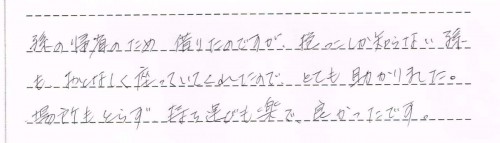 孫の帰省のため 借りたのですが、抱っこしか知らない孫
も、おとなしく座っていてくれたので、とても助かりました。
場所もとらず 持ち運びも楽で、良かったです。